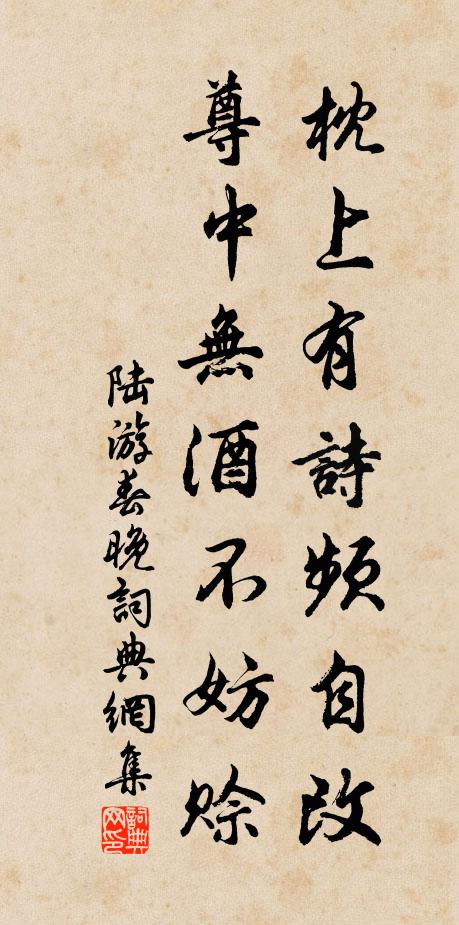 枕上有詩頻自改
尊中無酒不妨賒
陸游春晚詞典網集
詞典網印